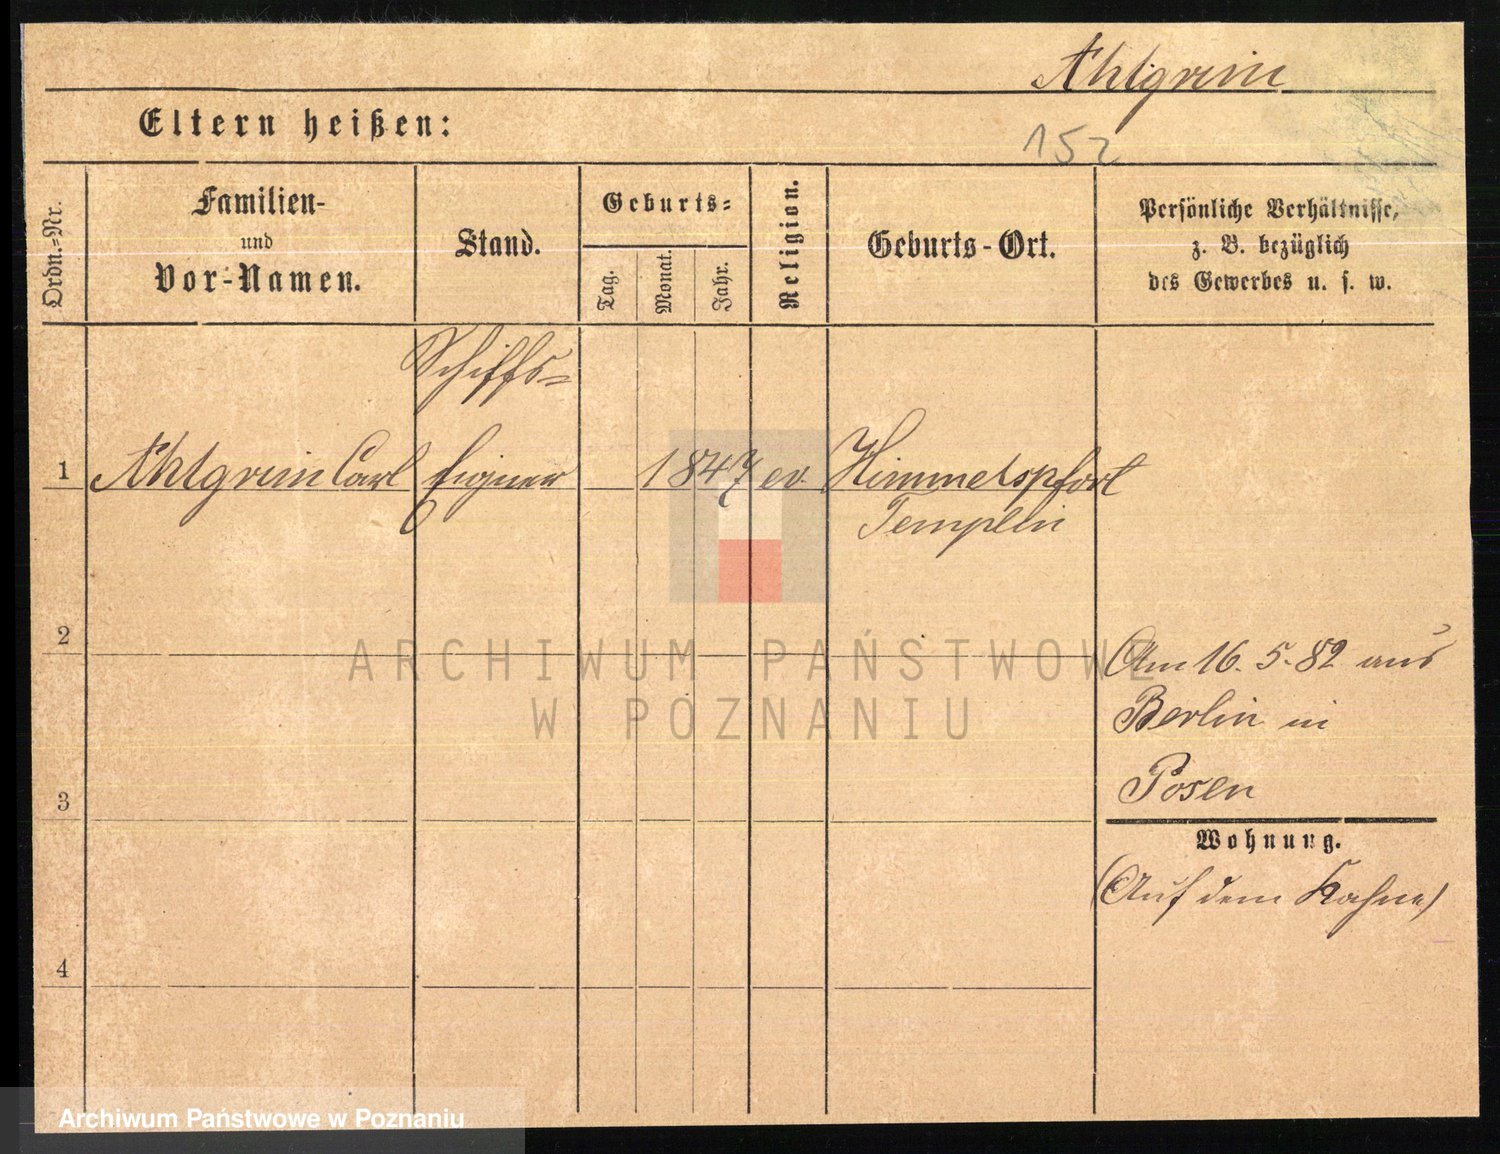 Ahlgrim
Eltern heißen:
152
Ordn.=Nr.
Familien-
und
Vor-Namen.
Stand.
Geburts=
Tag.
Monat.
Jahr.
Religion.
Geburts-Ort.
Persönliche Verhältnisse,
z. B. bezüglich
des Gewerbes u. s. w.
Schiffs=
1 Ahlgrim Carl Eigner 1847 ev. Himmelspfort
Templin
2
Am 16. 5. 82 aus
Berlin in
Posen
3
Wohnung.
(Auf dem Kahne)
4
ARCHIWUM PAŃSTWOWE
W POZNANIU
Archiwum Państwowe w Poznaniu